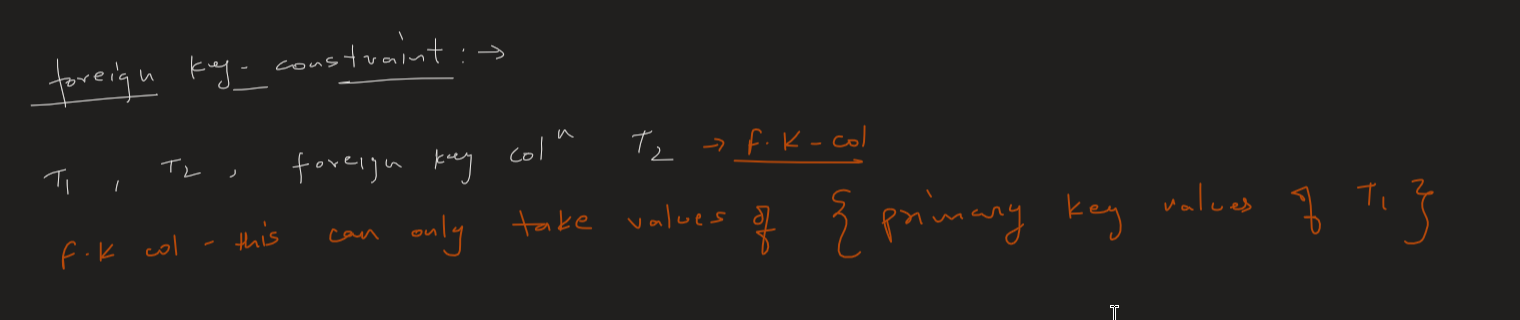 foreign key-constraint :→
T₁ , T₂ , foreign key colⁿ T₂ → f.K-col
f.K col - this can only take values of { primary key values of T₁ }